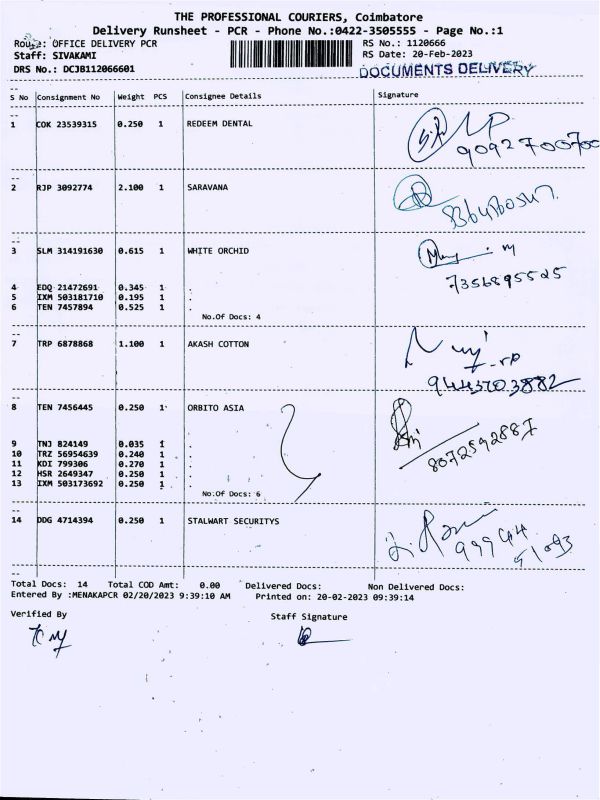 THE PROFESSIONAL COURIERS, Coimbatore
Delivery Runsheet - PCR - Phone No.:0422-3505555 - Page No.:1
Route: OFFICE DELIVERY PCR RS No.: 1120666
Staff: SIVAKAMI RS Date: 20-Feb-2023
DRS No.: DCJB112066601 DOCUMENTS DELIVERY
S No Consignment No Weight PCS Consignee Details Signature
1 COK 23539315 0.250 1 REDEEM DENTAL
9092700700
2 RJP 3092774 2.100 1 SARAVANA
3 SLM 314191630 0.615 1 WHITE ORCHID
7356895525
4 EDQ 21472691 0.345 1 .
5 IXM 503181710 0.195 1 .
6 TEN 7457894 0.525 1 .
No.Of Docs: 4
7 TRP 6878868 1.100 1 AKASH COTTON
9443703882
8 TEN 7456445 0.250 1 ORBITO ASIA
8072592887
9 TNJ 824149 0.035 1 .
10 TRZ 56954639 0.240 1 .
11 KDI 799306 0.270 1 .
12 HSR 2649347 0.250 1 .
13 IXM 503173692 0.250 1 .
No.Of Docs: 6
14 DDG 4714394 0.250 1 STALWART SECURITYS
99944
51093
Total Docs: 14 Total COD Amt: 0.00 Delivered Docs: Non Delivered Docs:
Entered By :MENAKAPCR 02/20/2023 9:39:10 AM Printed on: 20-02-2023 09:39:14
Verified By Staff Signature